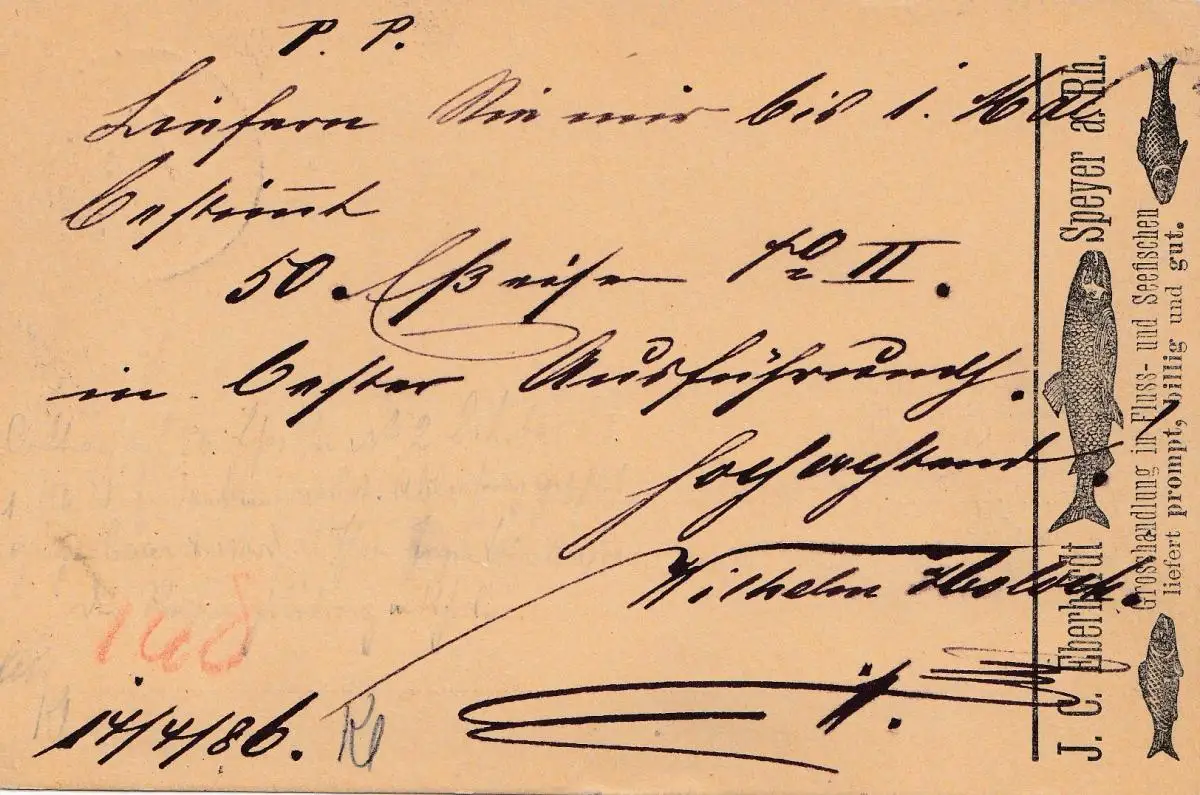 P. P.
Liefern Sie mir bis 1. Mai
bestim̅t
50 Eßreifen No II.
in bester Ausführung.
Hochachtend
Wilhelm
14/4/86.
Kl
168
J. C. Eberhardt Speyer a. Rh.
Grosshandlung in Fluss- und Seefischen
liefert prompt, billig und gut.